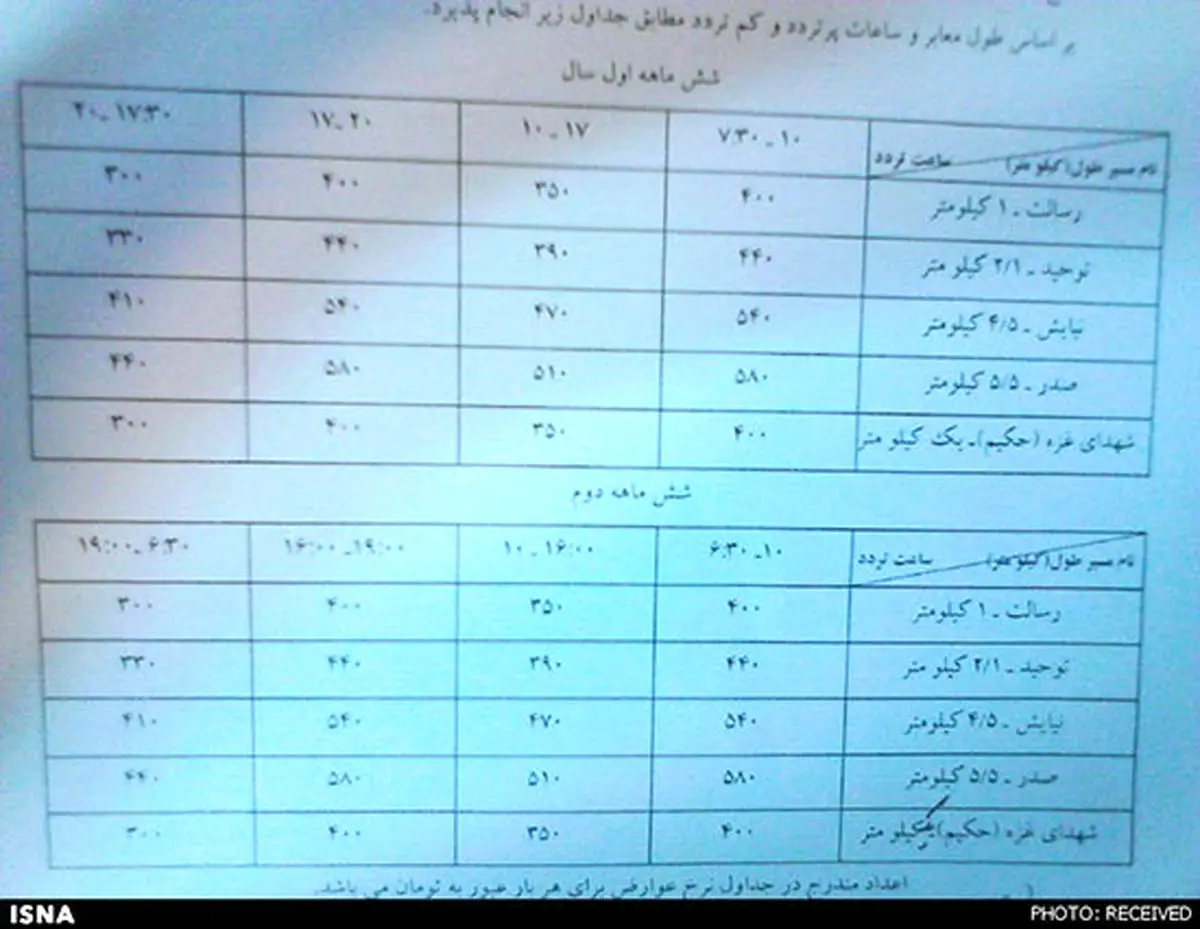 بر اساس طول معابر و ساعات پرتردد و کم تردد مطابق جداول زیر انجام پذیرد.
شش ماهه اول سال
نام مسیر طول(کیلو متر) ساعت تردد ۱۰ ـ ۷:۳۰ ۱۷ ـ ۱۰ ۲۰ ـ ۱۷ ۱۷:۳۰ ـ ۲۰
رسالت ـ ۱ کیلومتر ۴۰۰ ۳۵۰ ۴۰۰ ۳۰۰
توحید ـ ۲/۱ کیلو متر ۴۴۰ ۳۹۰ ۴۴۰ ۳۳۰
نیایش ـ ۴/۵ کیلومتر ۵۴۰ ۴۷۰ ۵۴۰ ۴۱۰
صدر ـ ۵/۵ کیلومتر ۵۸۰ ۵۱۰ ۵۸۰ ۴۴۰
شهدای غزه (حکیم)ـ یک کیلو متر ۴۰۰ ۳۵۰ ۴۰۰ ۳۰۰
شش ماهه دوم
نام مسیر طول(کیلو متر) ساعت تردد ۱۰ـ ۶:۳۰ ۱۶:۰۰ ـ ۱۰ ۱۹:۰۰ـ ۱۶:۰۰ ۶:۳۰ ـ ۱۹:۰۰
رسالت ـ ۱ کیلومتر ۴۰۰ ۳۵۰ ۴۰۰ ۳۰۰
توحید ـ ۲/۱ کیلو متر ۴۴۰ ۳۹۰ ۴۴۰ ۳۳۰
نیایش ـ ۴/۵ کیلومتر ۵۴۰ ۴۷۰ ۵۴۰ ۴۱۰
صدر ـ ۵/۵ کیلومتر ۵۸۰ ۵۱۰ ۵۸۰ ۴۴۰
شهدای غزه (حکیم) یک کیلو متر ۴۰۰ ۳۵۰ ۴۰۰ ۳۰۰
اعداد مندرج در جداول نرخ عوارض برای هر بار عبور به تومان می باشد.
ISNA PHOTO: RECEIVED